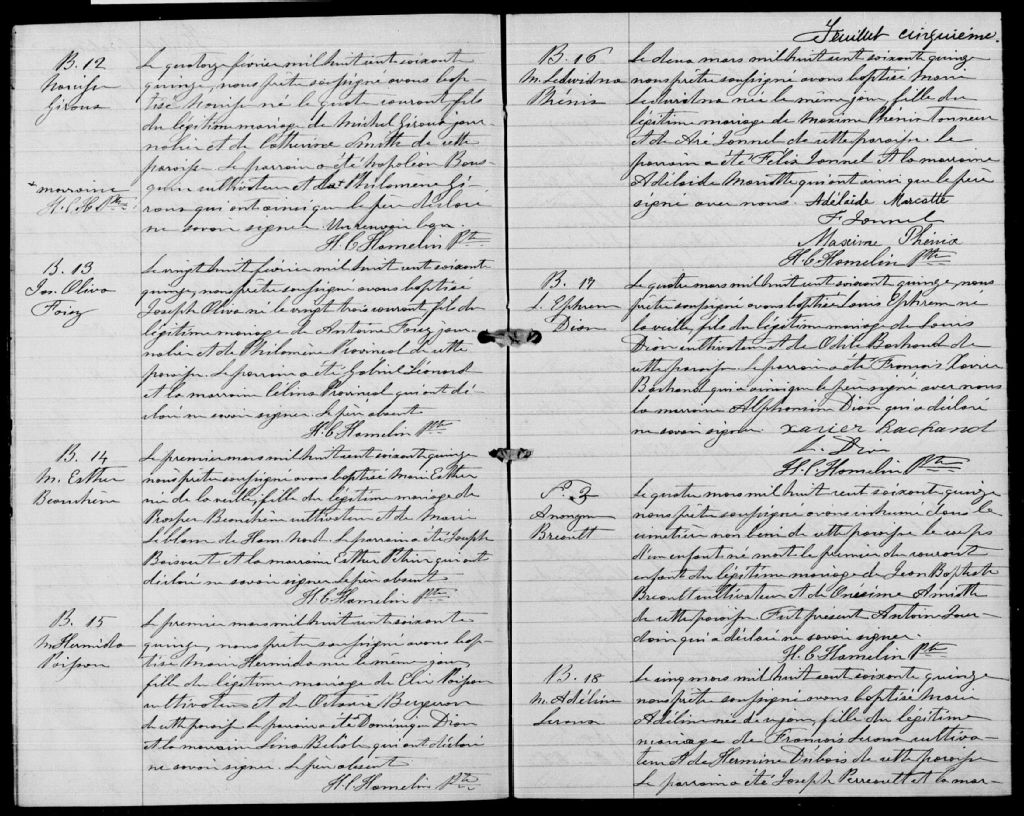 B. 12
Narcisse
Giroux
+ marraine
H.C.H. Ptre
Le quatorze février mil huit cent soixante
quinze, nous prêtre soussigné avons bap-
tisé Narcisse né le quatre courant, fils
du légitime mariage de Michel Giroux jour-
nalier et de Catherine Smith de cette
paroisse. Le parrain a été Napoléon Bour-
que cultivateur et la + Philomène Gi-
roux qui ont ainsi que le père déclaré
ne savoir signer.
H. C. Hamelin Ptre
B. 13
Jos. Oliva
Foisy
Le vingt huit février mil huit cent soixante
quinze, nous prêtre soussigné avons baptisé
Joseph Oliva né le vingt trois courant, fils du
légitime mariage de Antoine Foisy jour-
nalier et de Philomène Provincal de cette
paroisse. Le parrain a été Gabriel Léonard
et la marraine Célina Provincal qui ont dé-
claré ne savoir signer. Le père absent.
H. C. Hamelin Ptre
B. 14
M. Esther
Beauchêne
Le premier mars mil huit cent soixante quinze
nous prêtre soussigné avons baptisé Marie Esther
née de la veille, fille du légitime mariage de
Prosper Beauchêne cultivateur et de Marie
Leblanc de Ham Nord. Le parrain a été Joseph
Boisvert et la marraine Esther qui ont
déclaré ne savoir signer. Le père absent.
H. C. Hamelin Ptre
B. 15
M. Hermida
Poisson
Le premier mars mil huit cent soixante
quinze, nous prêtre soussigné avons bap-
tisé Marie Hermida née le même jour,
fille du légitime mariage de Elie Poisson
cultivateur et de Octavie Bergeron
de cette paroisse. Le parrain a été Dominique Dion
et la marraine Lina qui ont déclaré
ne savoir signer. Le père absent.
H. C. Hamelin Ptre
Feuillet cinquième.
B. 16
M. Ledwidna
Phénix
Le deux mars mil huit cent soixante quinze
nous prêtre soussigné avons baptisé Marie
Ledwidna née le même jour, fille du
légitime mariage de Maxime Phénix tanneur
et de Aré Tonnel de cette paroisse. Le
parrain a été Félix Tonnel et la marraine
Adélaïde Marcotte qui ont ainsi que le père
signé avec nous. Adélaïde Marcotte
F. Tonnel
Maxime Phénix
H. C. Hamelin Ptre
B. 17
L. Ephrem
Dion
Le quatre mars mil huit cent soixante quinze, nous
prêtre soussigné avons baptisé Louis Ephrem né
la veille, fils du légitime mariage de Louis
Dion cultivateur et de Odile Bachand de
cette paroisse. Le parrain a été François Xavier
Bachand qui a ainsi que le père signé avec nous
la marraine Alphonsine Dion qui a déclaré
ne savoir signer. Xavier Bachand
L. Dion
H. C. Hamelin Ptre
S. 3
Anonyme
Breault
Le quatre mars mil huit cent soixante quinze
nous prêtre soussigné avons inhumé dans le
cimetière non béni de cette paroisse le corps
d'un enfant né mort le premier du courant
enfant du légitime mariage de Jean Baptiste
Breault cultivateur et de Onésime Amiotte
de cette paroisse. Fut présent Antoine Jour-
dain qui a déclaré ne savoir signer.
H. C. Hamelin Ptre
B. 18
M. Adéline
Leroux
Le cinq mars mil huit cent soixante quinze
nous prêtre soussigné avons baptisé Marie
Adéline née du jour, fille du légitime
mariage de François Leroux cultiva-
teur et de Hermine Dubois de cette paroisse
Le parrain a été Joseph Perreault et la mar-